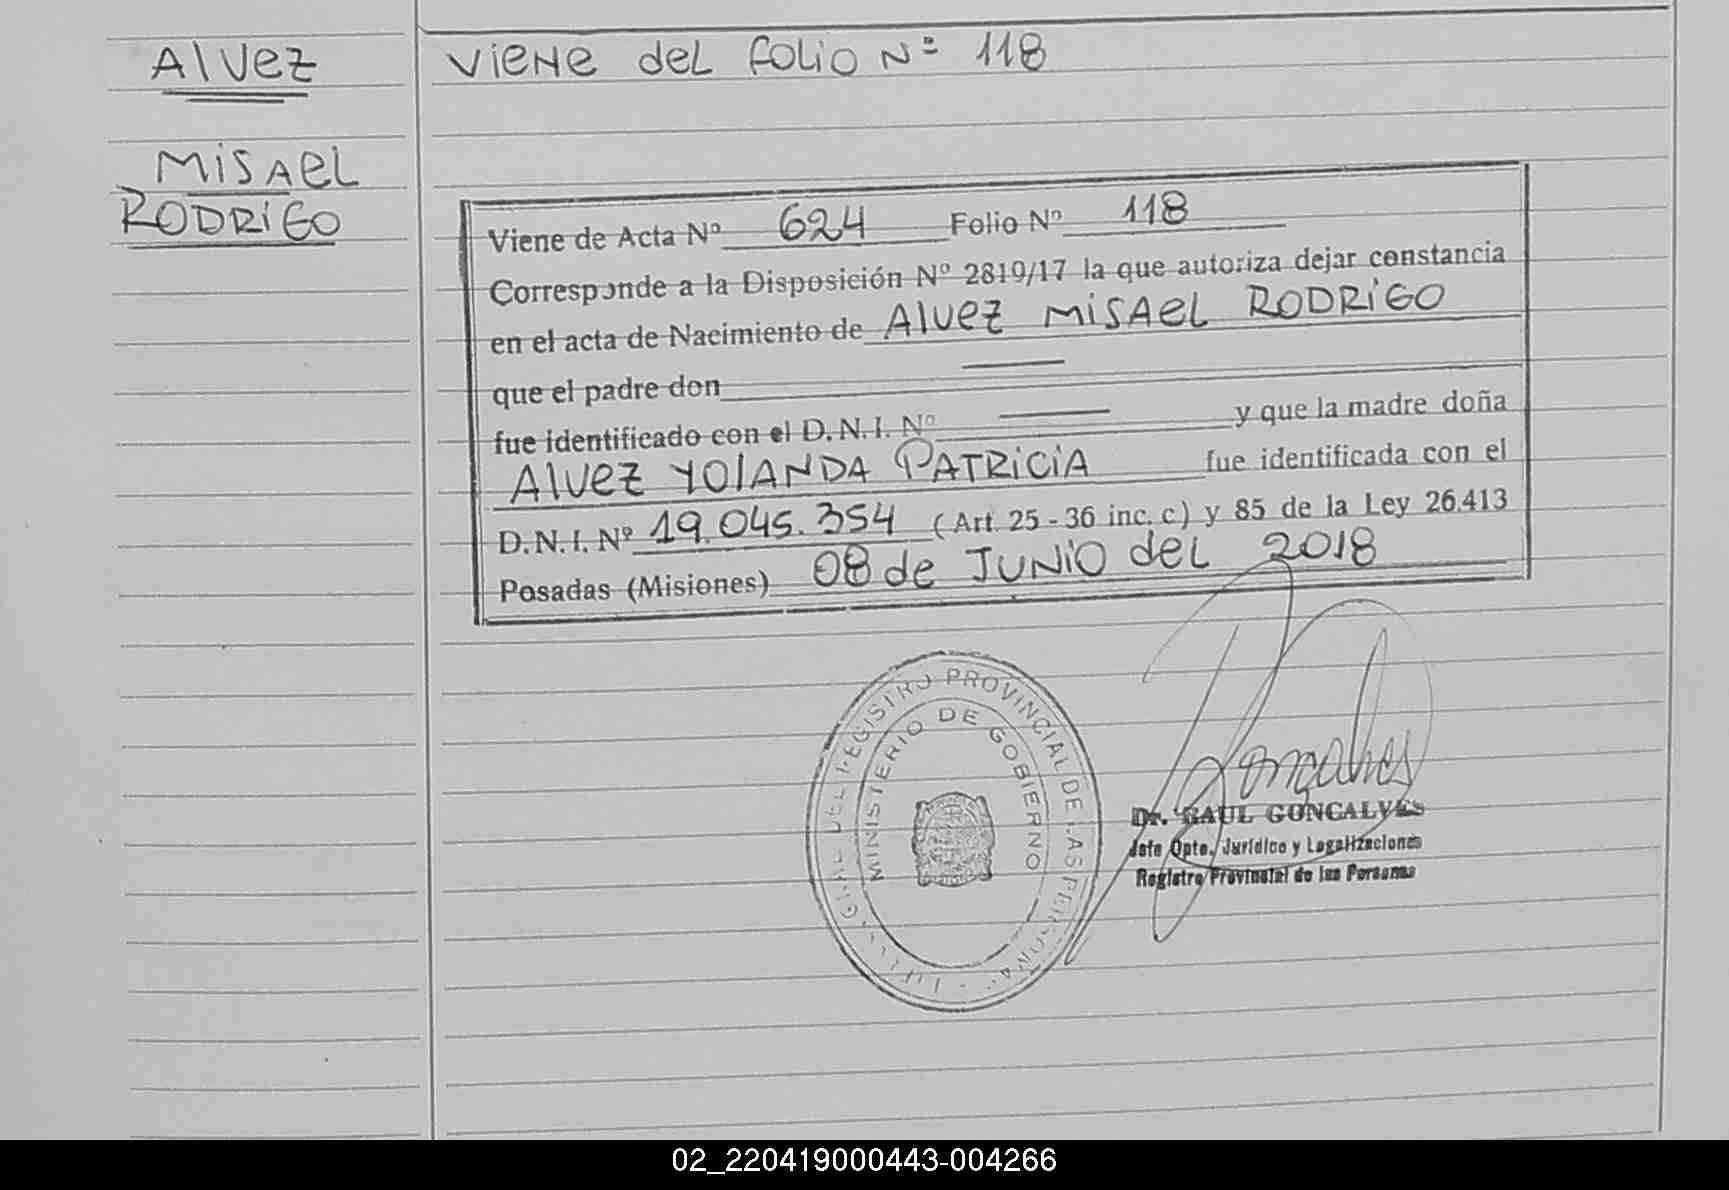 Alvez
Misael
Rodrigo
Viene del folio Nº 118
Viene de Acta Nº 624 Folio Nº 118
Corresponde a la Disposición Nº 2819/17 la que autoriza dejar constancia
en el acta de Nacimiento de Alvez Misael Rodrigo
que el padre don —
fue identificado con el D.N.I. Nº — y que la madre doña
Alvez Yolanda Patricia fue identificada con el
D.N.I. Nº 19.045.354 (Art. 25 - 36 inc. c) y 85 de la Ley 26.413
Posadas (Misiones) 08 de Junio del 2018
REGISTRO PROVINCIAL DE LAS PERSONAS
MINISTERIO DE GOBIERNO
Dr. RAUL GONCALVES
Jefe Dpto. Jurídico y Legalizaciones
Registro Provincial de las Personas
02_220419000443-004266